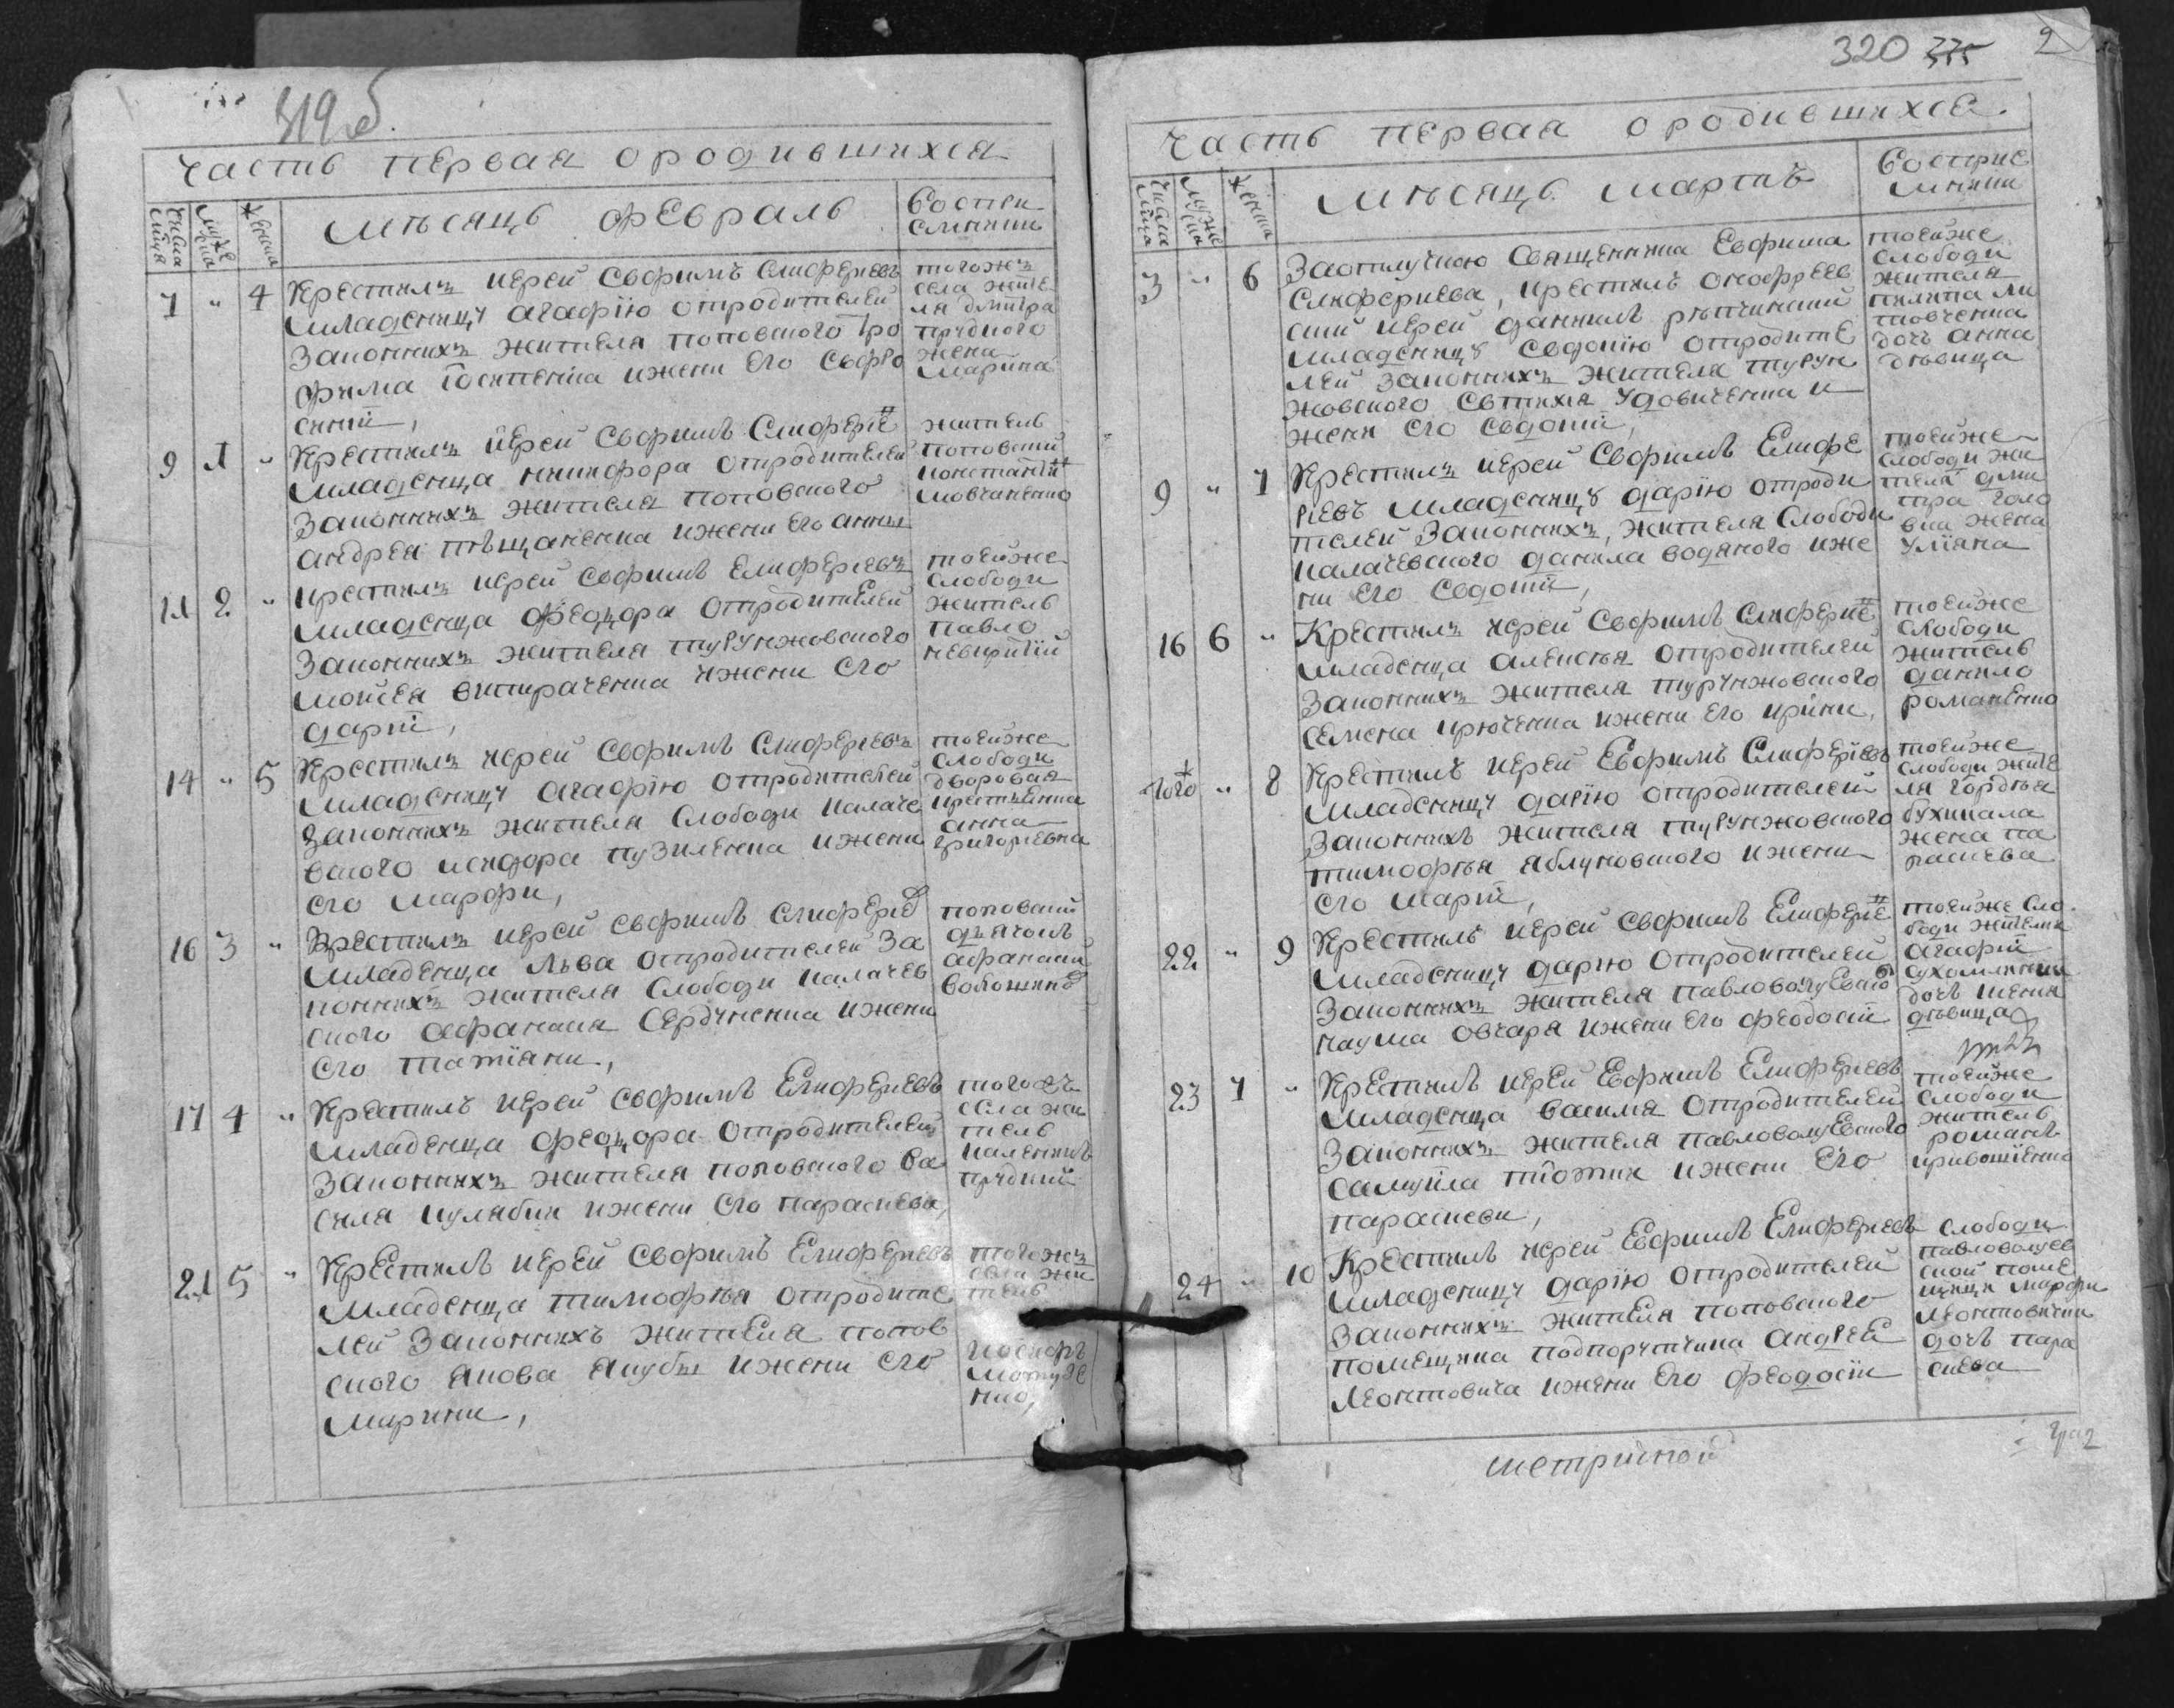 319об.
Часть первая ородившихся
Числа
Мужеска
Женска
мѣсяцъ февраль
Воспри
емники
7 " 4 Крестилъ иерей Евфимъ Елиферіевъ
младеницу агафію отродителей
Законнихъ жителя поповского Тро
фима Iосипенка ижени его Евфро
синіи,
тогожъ
села жите
ля дмитра
прудкого
жена
марина
9 1 " Крестилъ иерей Евфимъ Елиферіе
младенца никифора отродителей
Законнихъ жителя поповского
андрея пѣщаненка ижени его анны
житель
поповский
константи
мовчаненко
11 2 " Крестилъ иерей Евфимъ Елиферіевъ
младенца феодора отродителей
Законнихъ жителя турунжовского
мойсея витираченка ижени его
даріи,
тоейже
слободи
житель
павло
невкритій
14 " 5 Крестилъ иерей Евфимъ Елиферіевъ
младеницу агафію отродителей
Законнихъ жителя слободи калаче
вского исидора пузиленка ижени
его марфи,
тоейже
слободи
дворовая
крестьянка
анна
григориевна
16 3 " Крестилъ иерей Евфимъ Елиферіе
младенца Льва отродителей За
коннихъ жителя слободи калачев
ского афанасия Сердученка ижени
его татіяни,
поповский
дьячокъ
афанасий
волошинъ
17 4 " Крестилъ иерей Евфимъ Елифериевъ
младенца феодора отродителей
Законнихъ жителя поповского Ва
силя кулябки ижени его параскеви,
тогожъ
села жи
тель
каленикъ
прудкий
21 5 " Крестилъ иерей Евфимъ Елифериевъ
младенца тимофѣя отродите
лей Законнихъ жителя попов
ского якова якубы ижени его
марини,
тогожъ
села жи
тель
иосифъ
мотузе
нко,
320 375 2
Часть первая ородившихся.
Числа
Муже
ска
Женска
мѣсяцъ мартъ
Восприе
мники
3 " 6 Заотлучкою Священника Евфима
Елифериева, крестилъ онофриев
ский иерей даниилъ рѣпчинский
младеницу евдокію отродите
лей законнихъ жителя турун
жовского Евтихия Удовиченка и
жени его евдокіи,
тоейже
слободи
жителя
пилипа ли
товченка
дочь анна
дѣвица
9 " 7 Крестилъ иерей Евфимъ Елифе
риевъ младеницу дарію отроди
телей Законнихъ, жителя слободи
калачевского данила водяного иже
ни его евдокіи,
тоейже
слободи жи
теля дми
тра голо
вки жена
уліяна
16 6 " Крестилъ иерей Евфимъ Елиферие
младенца алексѣя отродителей
Законнихъ жителя турунжовского
семена крюченка ижени его ирини,
тоейже
слободи
житель
данило
романенко
Того " 8 Крестилъ иерей Евфимъ Елиферіевъ
младеницу дарію отродителей
Законнихъ жителя турунжовского
тимофѣя яблуновского ижени
его маріи,
тоейже
слободи жите
ля гордѣя
бухикала
жена па
раскева
22 " 9 Крестилъ иерей Евфимъ Елиферіе
младеницу дарию отродителей
Законнихъ жителя павловакуевского
наума овчара ижени его феодосіи
тоейже сло
боди жителки
агафіи
сухомлинки
дочь
дѣвица
23 7 " Крестилъ иерей Евфимъ Елифериевъ
младенца василя отродителей
Законнихъ жителя павловакуевского
самуила піотик ижени его
параскеви,
тоейже
слободи
житель
романъ
кривошіенко
24 " 10 Крестилъ иерей Евфимъ Елифериевъ
младеницу дарію отродителей
Законнихъ жителя поповского
помещика подпорутчика андрея
Леонтовича ижени его феодосіи
слободи
павловакуев
ской поме
щици марфи
Леонтовички
дочь пара
скева
метрикой